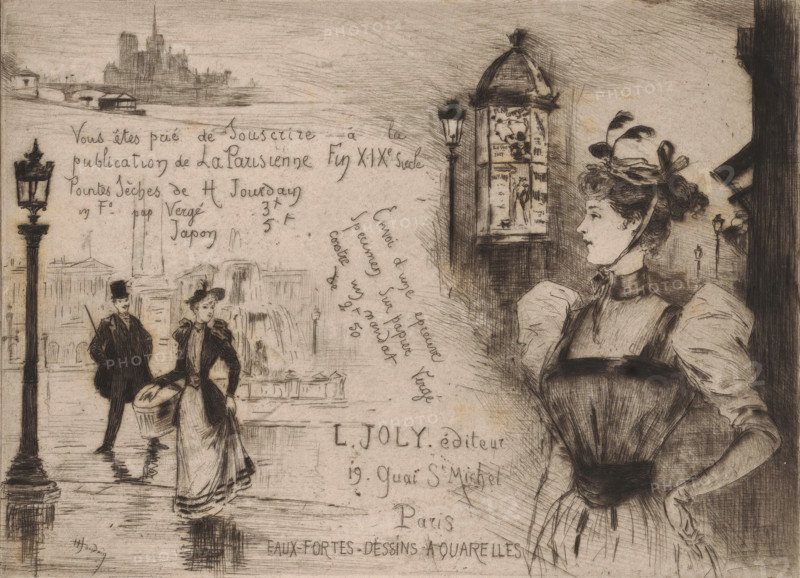 Vous êtes prié de Souscrire à la
publication de La Parisienne Fin XIXe Siècle
Pointes Sèches de H Jourdain
in Fo pap Vergé 3f
Japon 5f
Envoi d'une épreuve
Specimen Sur papier Vergé
contre un mandat
de 2f 50
L. JOLY. éditeur
19. Quai St Michel
Paris
EAUX-FORTES-DESSINS-AQUARELLES
PHOTO12